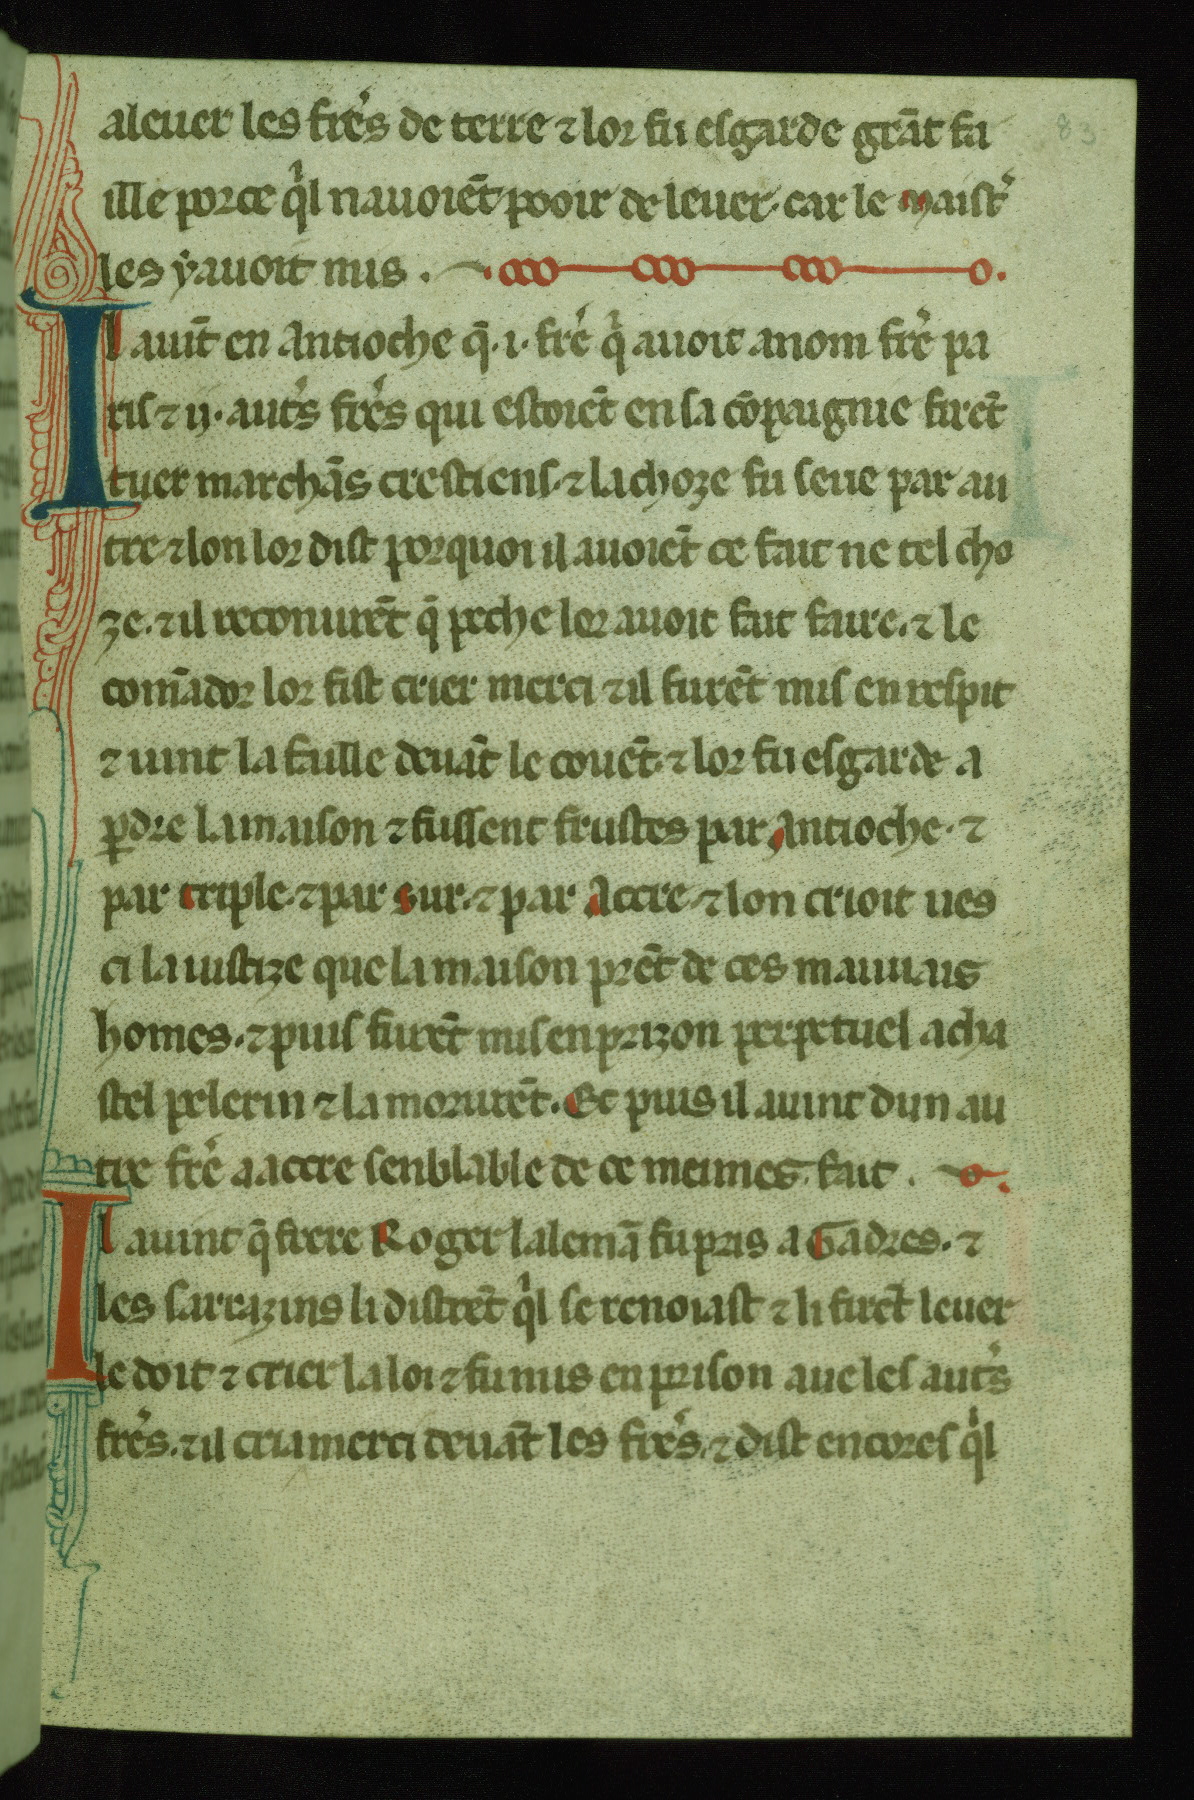 83
a leuer les frẽs de terre ⁊ lor fu esgarde grãt fa
ille por ce qͥl n auoiẽt pooir de leuer. car le maistˀ
les y auoit mis.
Il auĩt en Antioche q̃ .i. frẽ qͥ auoit anom frẽ pa
ris ⁊ ii. autˀs frẽs qui estoiẽt en sa cõpaignie firẽt
tuer marchãs crestiens. ⁊ la choze fu seue par au
tre. ⁊ lon lor dist por quoi il auoiẽt ce fait ne tel cho
ze. ⁊ il reconurẽt q̃ peche lor auoit fait faire. ⁊ le
comãdor lor fist crier merci ⁊ il furẽt mis en respit
⁊ uint la faille deuãt le couẽt. ⁊ lor fu esgarde a
ꝑdre la maison ⁊ fussent frustes par Antioche. ⁊
par triple. ⁊ par sur. ⁊ par Accre. ⁊ lon crioit ues
ci la iustize que la maison prẽt de ces mauuais
homes. ⁊ puis furẽt mis en prizon perpetuel a cha
stel pelerin ⁊ la morurẽt. Et puis il auint dun au
tre frẽ a accre senblable de ce meimes fait.
Il auint q̃ frere Roger lalemã fu pris a Gadres. ⁊
les sarrazins li distrẽt qͥl se renoiast ⁊ li firẽt leuer
le doit ⁊ crier la loi ⁊ fu mis en prison aue les autˀs
frẽs. ⁊ il cria merci deuãt les frẽs. ⁊ dist encores qͥl